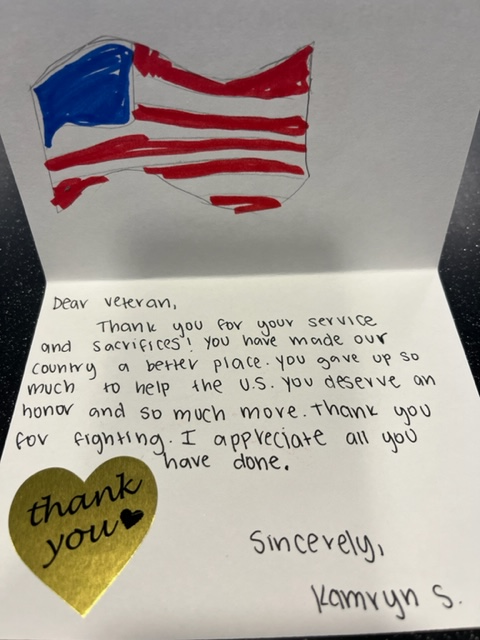 Dear veteran,
Thank you for your service
and sacrifices! you have made our
country a better place. you gave up so
much to help the U.S. you deserve an
honor and so much more. Thank you
for fighting. I appreciate all you
have done.
thank
you
Sincerely,
Kamryn S.